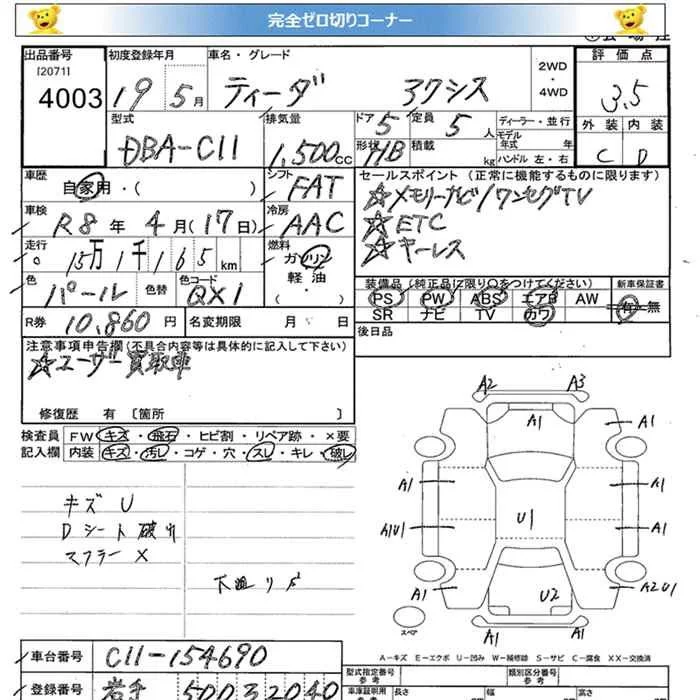 完全ゼロ切りコーナー
出品番号 [2071] 4003
初度登録年月 19年 5月
車名・グレード ティーダ アクシス
2WD・4WD
評価点 3.5
外装 内装
C D
型式 DBA-C11
排気量 1,500cc
ドア 5 定員 5人
形状 HB 積載 kg
ディーラー・並行
モデル年式 年
ハンドル 左・右
車歴 自家用・( )
シフト FAT
セールスポイント (正常に機能するものに限ります)
☆メモリーナビ/ワンセグTV
☆ETC
☆キーレス
車検 R8年 4月(17日)
冷房 AAC
走行 15万1千165km
燃料 ガソリン 軽・油 ・( )
色 パール 色替 色コード QX1
装備品 (純正品に限り○をつけてください)
PS PW ABS エアB AW
SR ナビ TV カワ
新車保証書 有・無
R券 10,860円 名変期限 月 日
後日品
注意事項申告欄(不具合内容等は具体的に記入して下さい)
☆ユーザー買取車
修復歴 有 〔箇所 〕
検査員 FW キズ・飛石・ヒビ割・リペア跡・×要
記入欄 内装 キズ・汚し・コゲ・穴・スレ・キレ・破し
キズ U
Dシート 破れ
マフラー ×
下廻り
A2 A3
A1
A1
A1 A1
A1 A1
A1U1 A1
U1
A1 U2 A2U1
A1 A1
スペア
A-キズ E-エクボ U-凹み W-補修跡 S-サビ C-腐食 XX-交換済
車台番号 C11-154690
型式指定番号 参考 類別区分番号 参考
登録番号 岩手 500 3 2040
車庫証明用 参考 長さ 幅 高さ